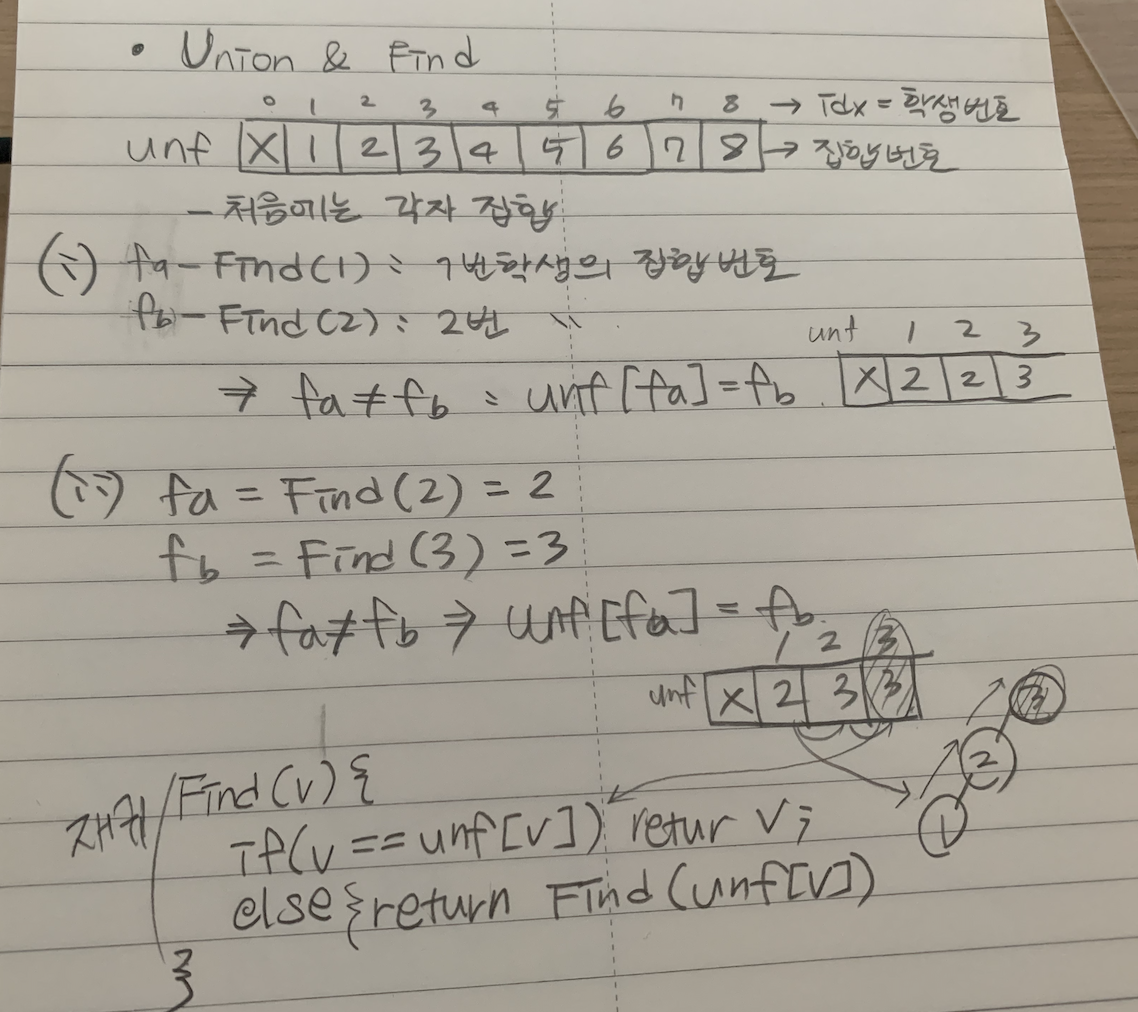 • Union & Find
0 1 2 3 4 5 6 7 8 → Idx = 학생번호
unf X 1 2 3 4 5 6 7 8 → 집합번호
- 처음에는 각자 집합
(i) fa - Find(1) : 1번학생의 집합번호
fb - Find(2) : 2번 〃
unf 1 2 3
⇒ fa ≠ fb : unf[fa] = fb. X 2 2 3
(ii) fa = Find(2) = 2
fb = Find(3) = 3
⇒ fa ≠ fb ⇒ unf[fa] = fb.
1 2 3
unf X 2 3 3
3
2
1
재귀 Find(v) {
if(v == unf[v]) retur v;
else { return Find(unf[v])
}